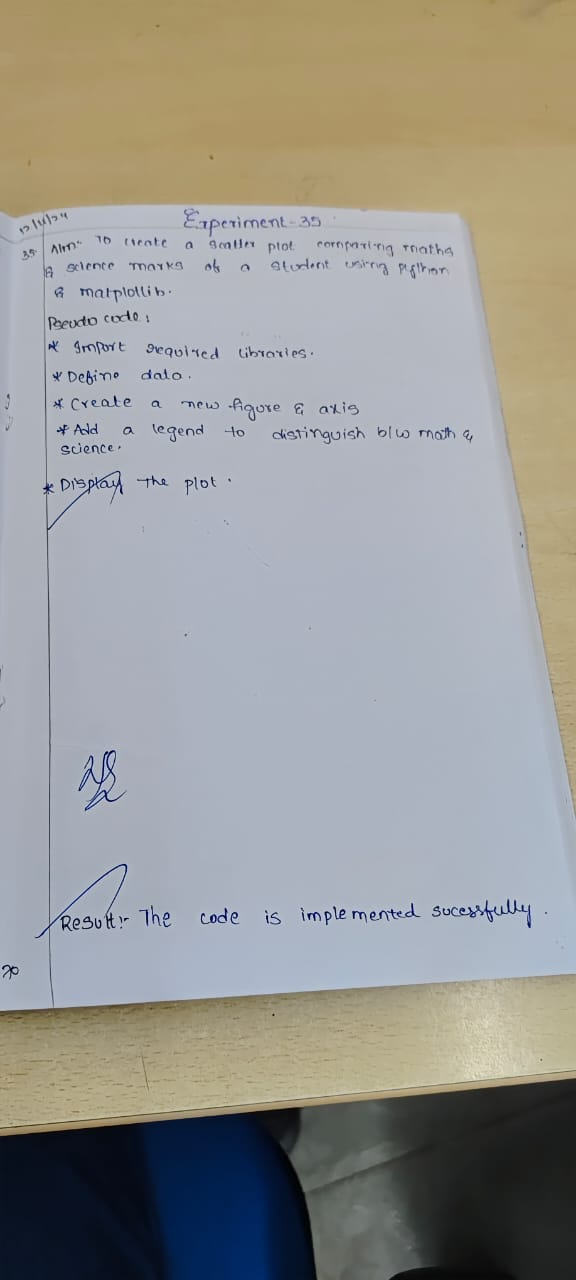 12/11/24
Experiment-35
35. Aim:- To create a scatter plot comparing maths
& science marks of a student using python
& matplotlib.
Pseudo code:
* Import required libraries.
* Define data.
* Create a new figure & axis
* Add a legend to distinguish b/w math &
science.
* Display the plot.
Result:- The code is implemented sucessfully.